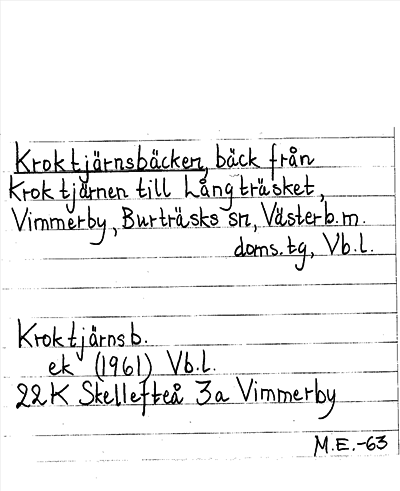 Kroktjärnsbäcken, bäck från
Kroktjärnen till Långträsket,
Vimmerby, Burträsks sn, Västerb.m.
doms.tg, Vb.l.
Kroktjärnsb.
ek (1961) Vb.l.
22K Skellefteå 3a Vimmerby
M.E.-63